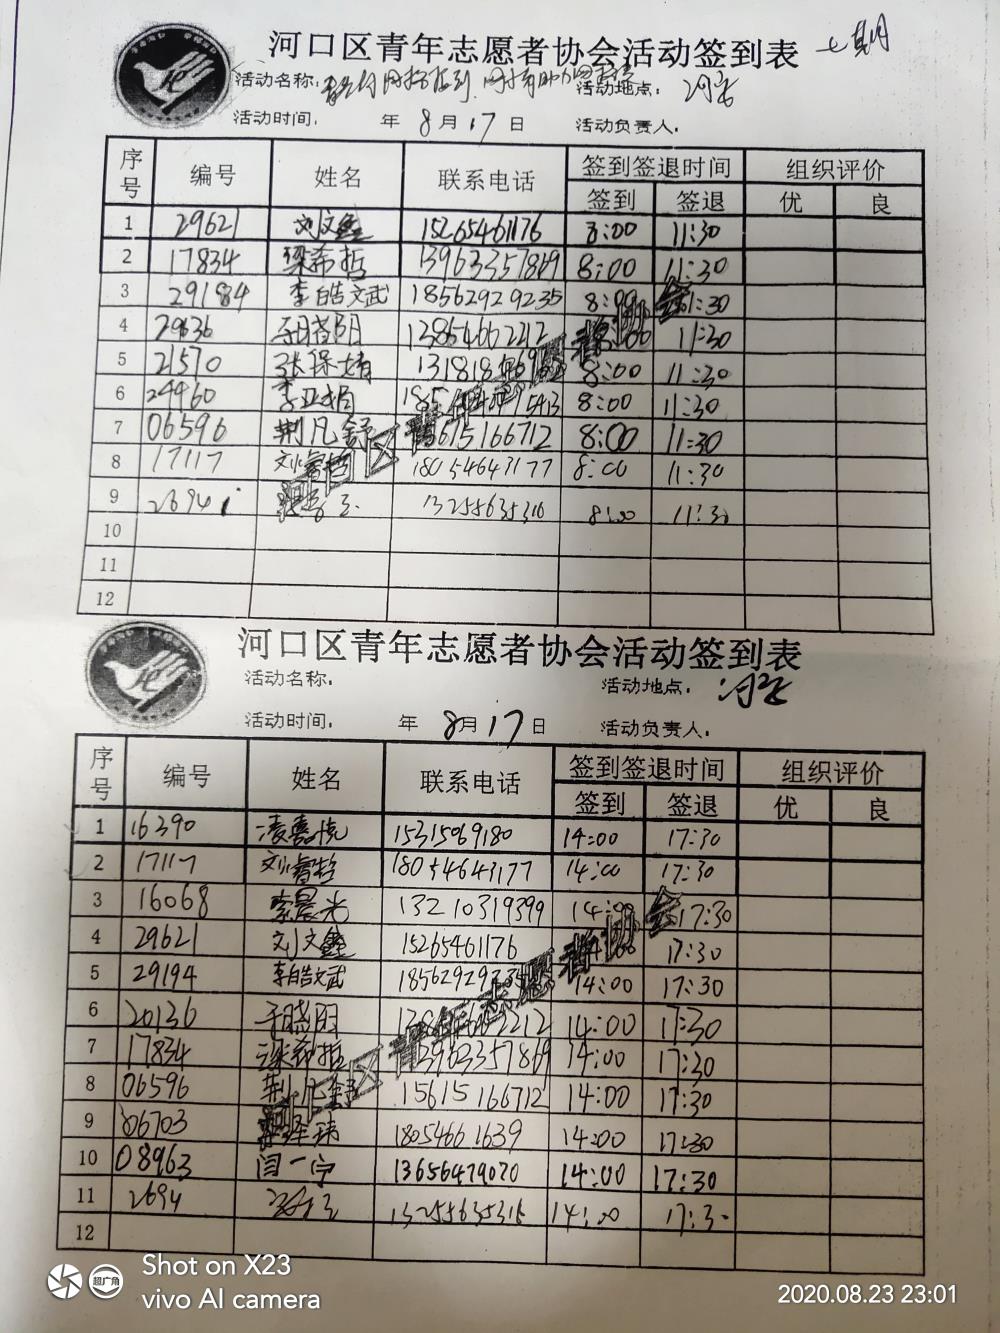 河口区青年志愿者协会活动签到表 七期
活动名称: 活动地点:
活动时间: 年 8月17日 活动负责人:
序号 编号 姓名 联系电话 签到签退时间 组织评价
签到 签退 优 良
1 29621 刘文鑫 15265461176 8:00 11:30
2 17834 梁希哲 13963357869 8:00 11:30
3 29184 李皓文武 18562929235 8:00 11:30
4 13854662212 11:30
5 21570 张保婧 8:00 11:30
6 24460 8:00 11:30
7 06596 荆凡舒 15166712 8:00 11:30
8 17117 刘睿哲 18054643177 8:00 11:30
9 2694 13255635316 8:00 11:30
10
11
12
河口区青年志愿者协会
河口区青年志愿者协会活动签到表
活动名称: 活动地点:
活动时间: 年 8月17日 活动负责人:
序号 编号 姓名 联系电话 签到签退时间 组织评价
签到 签退 优 良
1 16390 凌嘉悦 15315069180 14:00 17:30
2 17117 刘睿哲 18054643177 14:00 17:30
3 16068 索晨光 13210319399 14:00 17:30
4 29621 刘文鑫 15265461176 17:30
5 29194 李皓文武 14:00 17:30
6 20136 2212 14:00 17:30
7 17834 梁希哲 13963357869 14:00 17:30
8 06596 荆凡舒 15615166712 14:00 17:30
9 06703 18054661639 14:00 17:30
10 08963 闫一宁 13656479070 14:00 17:30
11 2694 13255635316 14:00 17:30
12
河口区青年志愿者协会
Shot on X23
vivo AI camera
超广角
2020.08.23 23:01